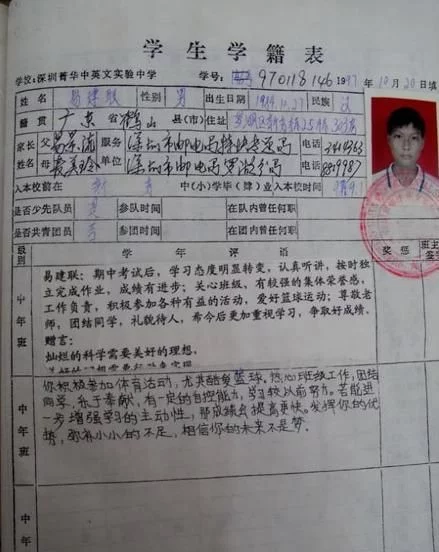 学生学籍表
学校:深圳菁华中英文实验中学 学号: 970118146 1997年10月20日填
姓名 易建联 性别 男 出生日期 1984.10.27 民族 汉
籍贯 广东省鹤山县(市) 住址
家长 父 易景流 服务 深圳市邮电局特快专递局 电话
姓名 母 麦美玲 单位 深圳市邮电局罗湖分局 电话
入本校前在 中(小)学毕(肄)业 入本校时间
是否少先队员 参队时间 在队内曾任何职
是否共青团员 否 参团时间 在团内曾任何职
级别 学年评语 奖惩 班主
签
中年班
易建联:期中考试后,学习态度明显转变,认真听讲,按时独
立完成作业,成绩有进步;关心班级,有较强的集体荣誉感,
工作负责,积极参加各种有益的活动,爱好篮球运动;尊敬老
师,团结同学,礼貌待人,希今后更加重视学习,争取好成绩。
赠言:
灿烂的科学需要美好的理想,
中年班
你积极参加体育活动,尤其酷爱篮球。热心班级工作,团结
同学,乐于奉献,有一定的自控能力,学习较以前努力。若能进
一步增强学习的主动性,那成绩会提高更快。发挥你的优
势,弥补小小的不足,相信你的未来不是梦。
中年